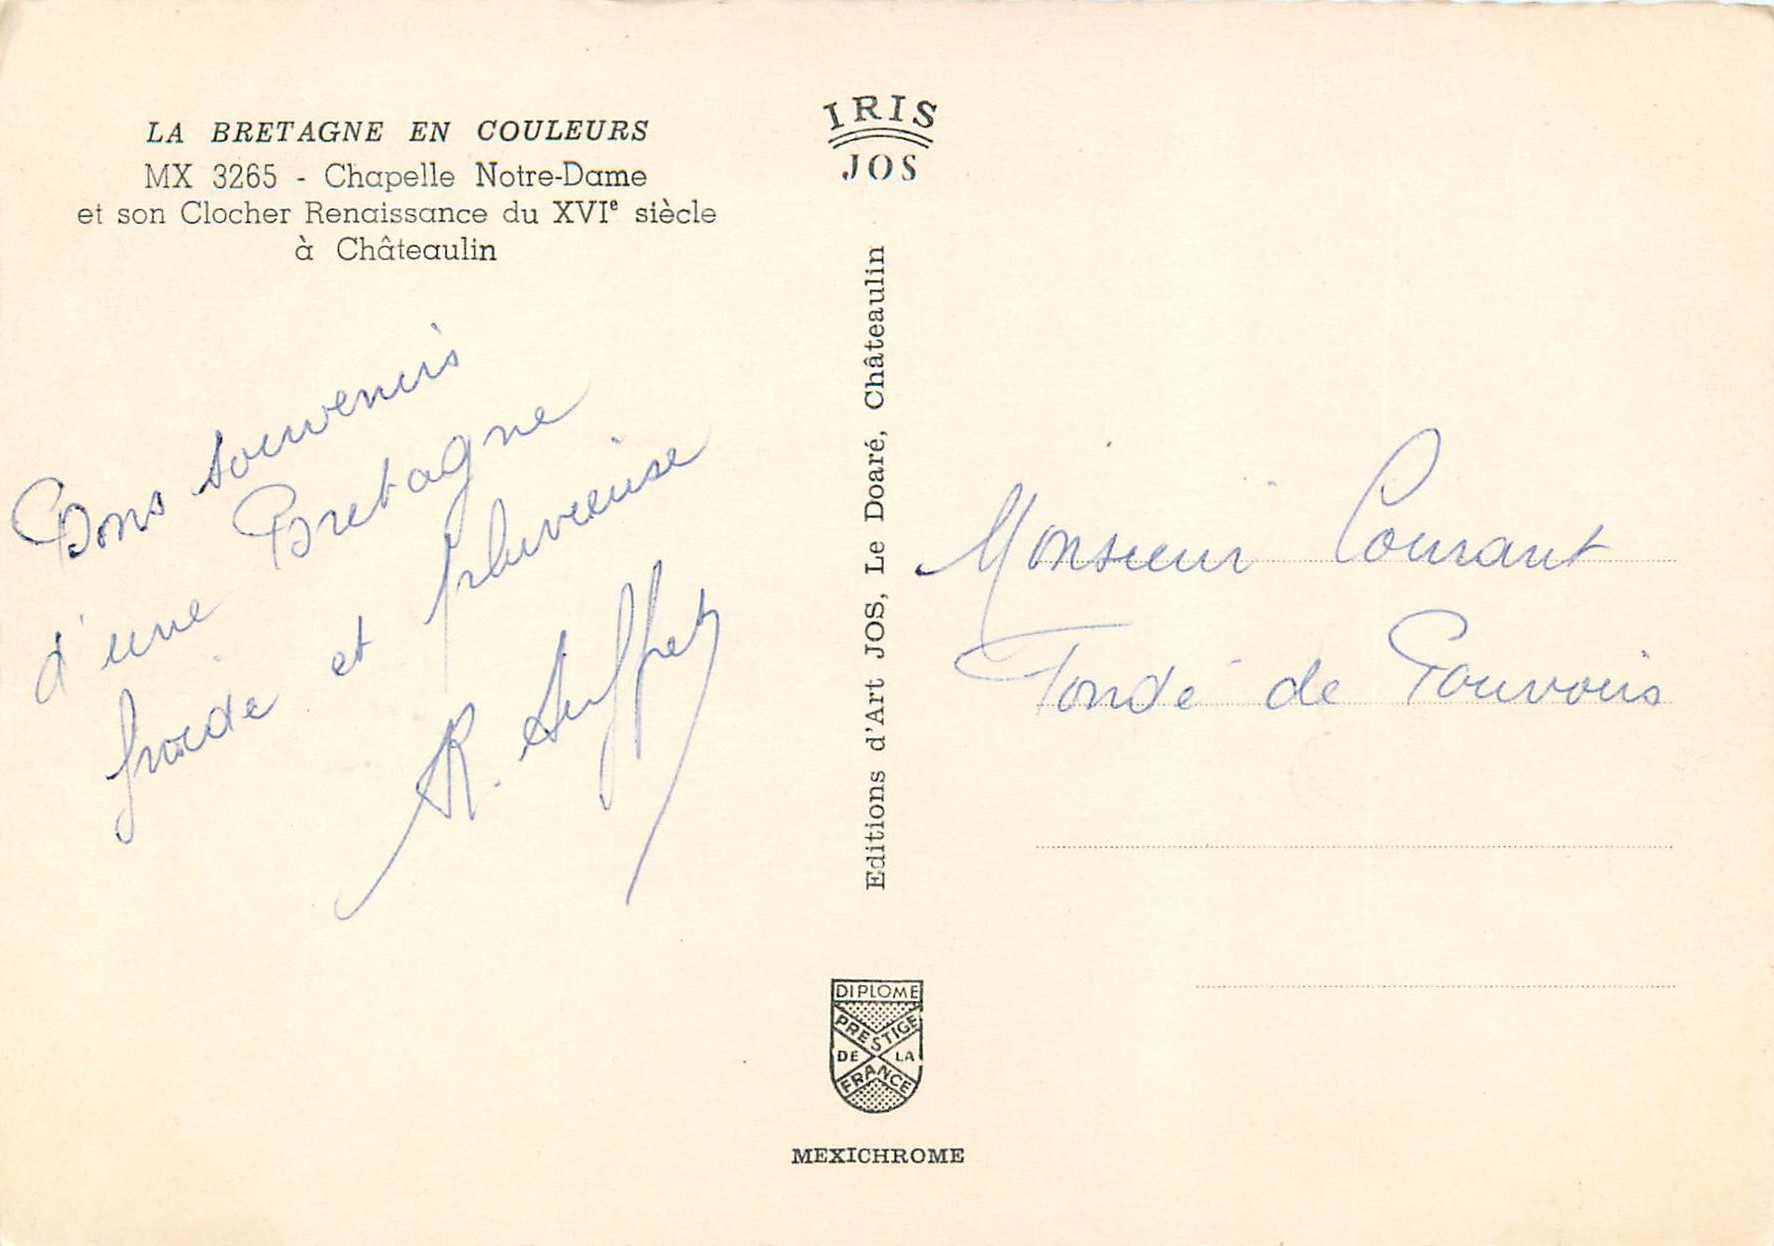 LA BRETAGNE EN COULEURS
MX 3265 - Chapelle Notre-Dame
et son Clocher Renaissance du XVIe siècle
à Châteaulin
Bons souvenirs
d'une Bretagne
froide et pluvieuse
R.
IRIS
JOS
Editions d'Art JOS, Le Doaré, Châteaulin
DIPLOME
PRESTIGE
DE LA
FRANCE
MEXICHROME
Monsieur Courant
Fondé de Pouvoirs